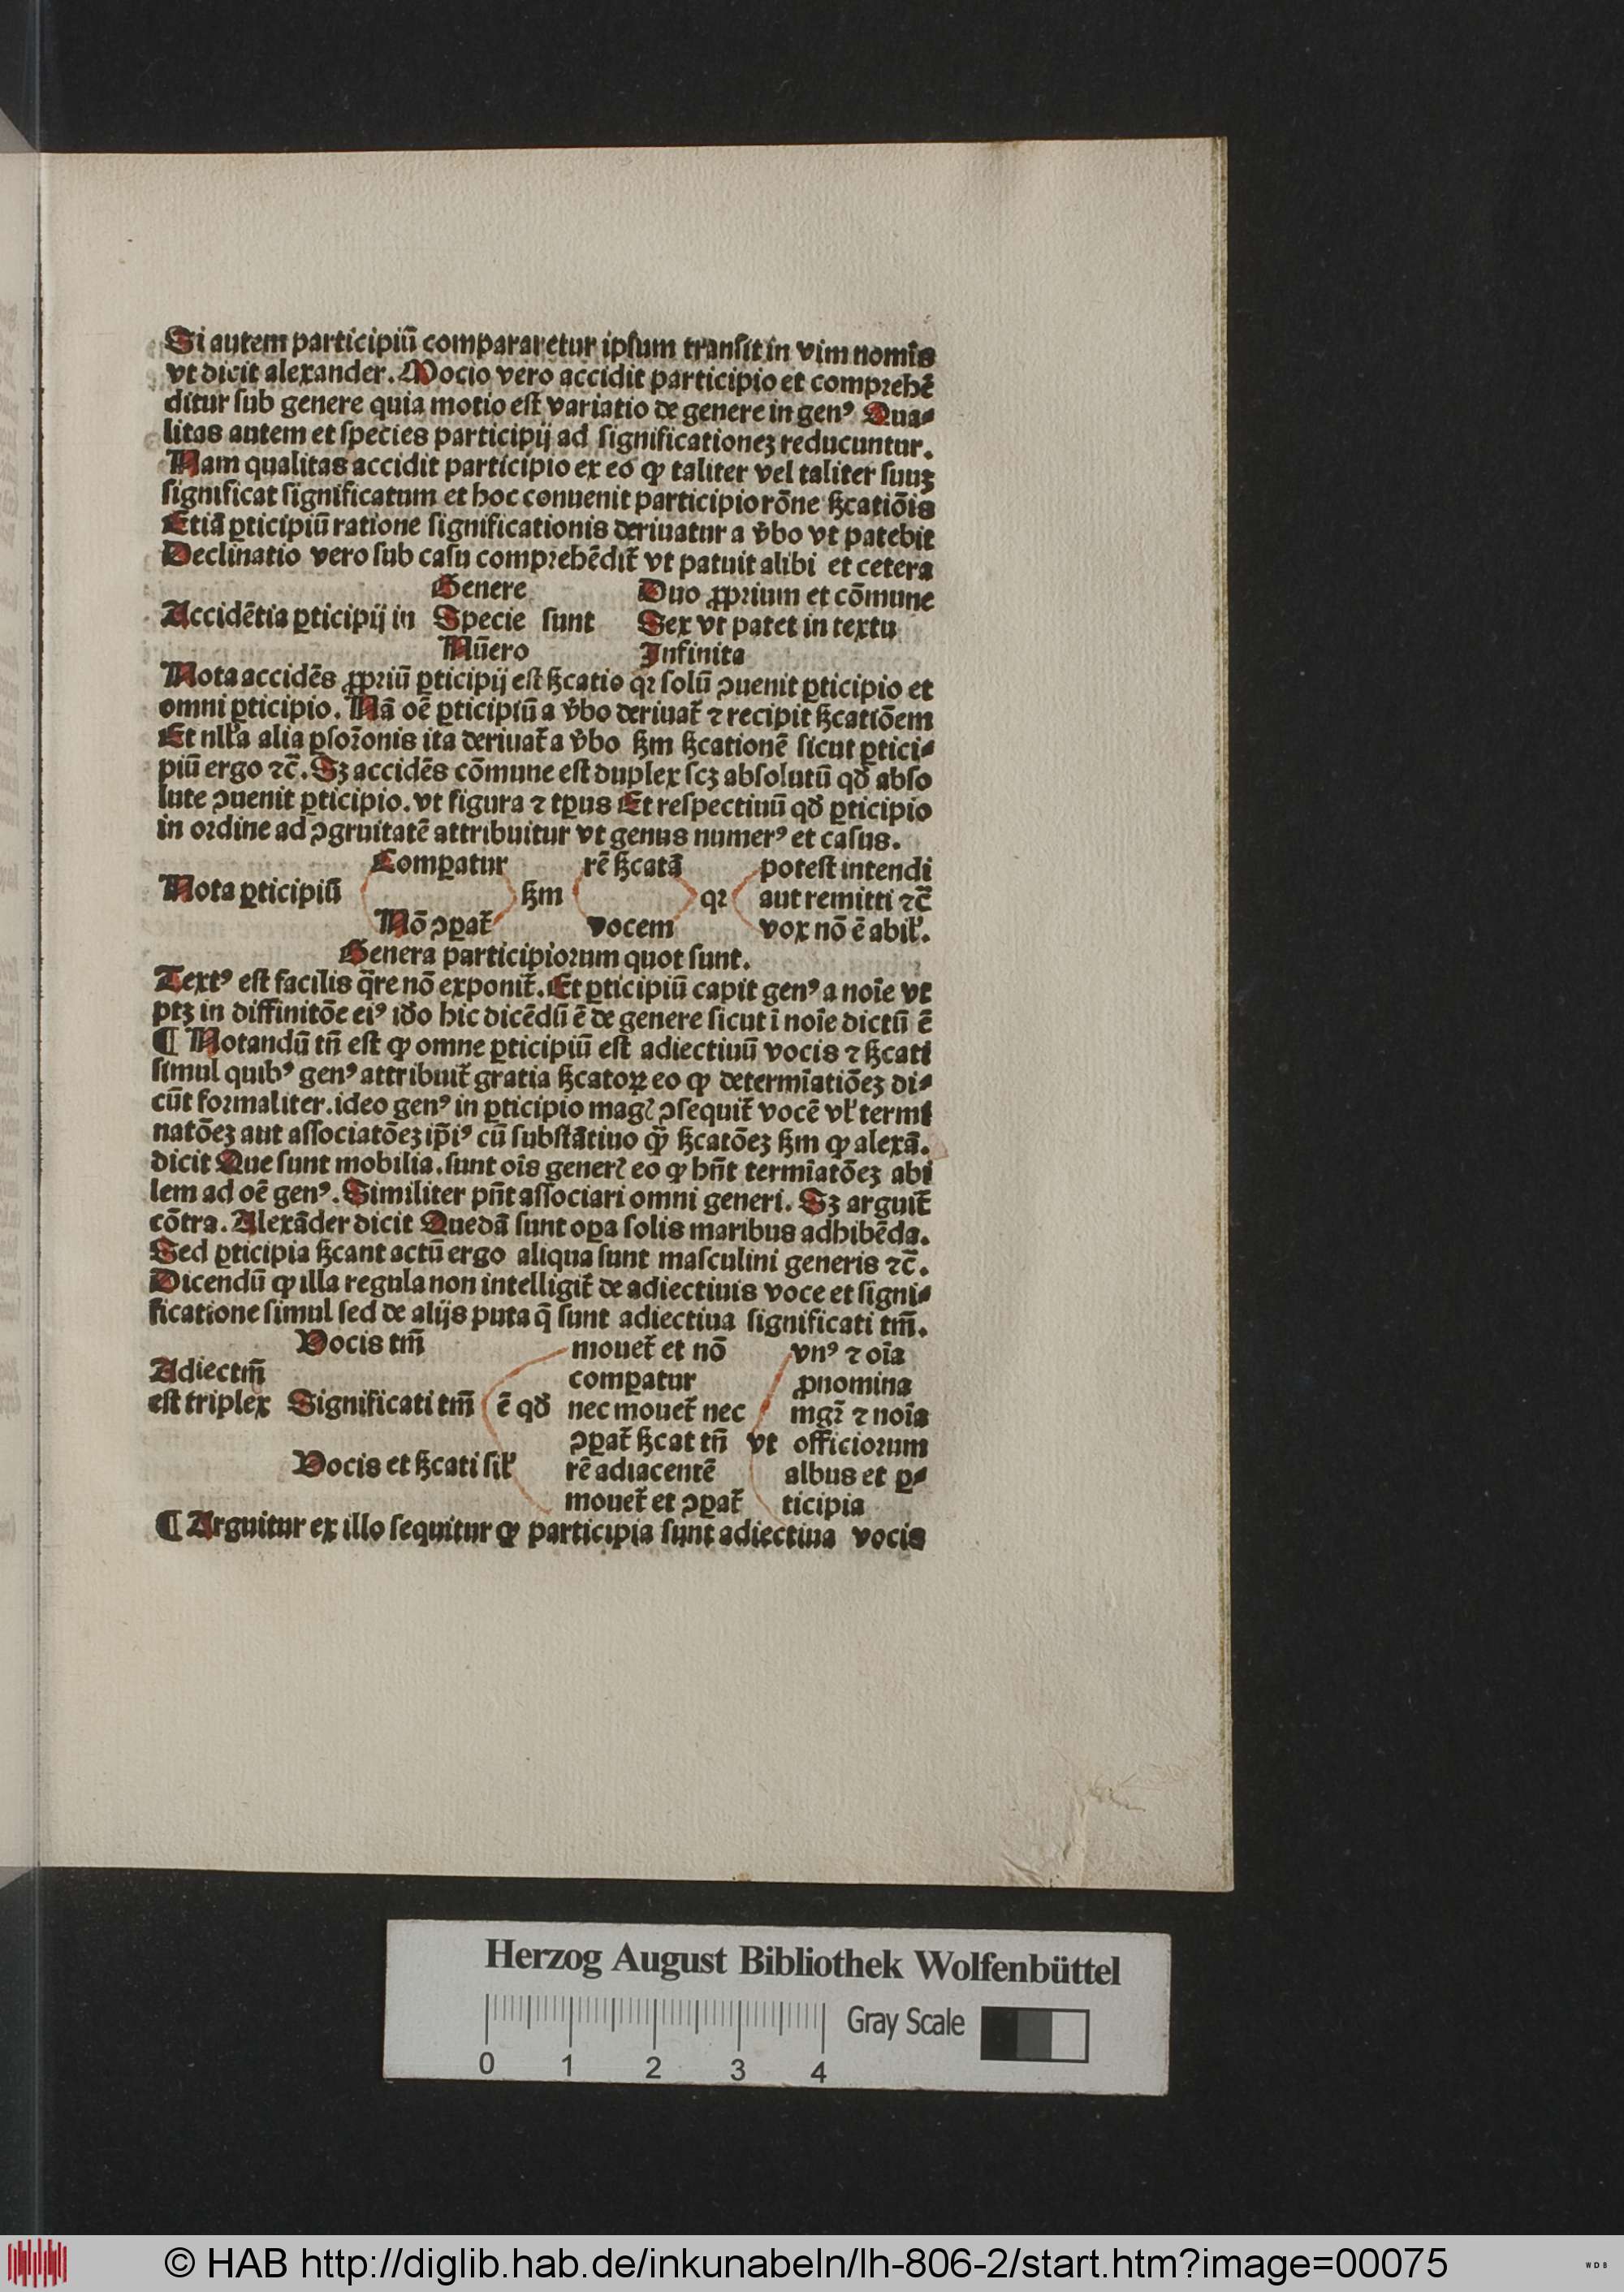 Si autem participiū compararetur ipſum tranſit in vim nomīs
vt dicit alexander. Mocio vero accidit participio et compꝛehē
ditur ſub genere quia motio eſt variatio de genere in genꝰ Qua⸗
litas autem et ſpecies participij ad ſignificationeꝫ reducuntur.
Nam qualitas accidit participio ex eo ꝙ taliter vel taliter ſuuꝫ
ſignificat ſignificatum et hoc conuenit participio rōne ſꝫcatiōis
Etiā ꝑticipiū ratione ſignificationis deriuatur a v̓bo vt patebit
Declinatio vero ſub caſu compꝛehēdit᷑ vt patuit alibi et cetera
Genere Duo ꝓpꝛium et cōmune
Accidētia ꝑticipij in Specie ſunt Sex vt patet in textu
Nūero Infinita
Nota accidēs ꝓpꝛiū ꝑticipij eſt ſꝫcatio qꝛ ſolū ꝯuenit ꝑticipio et
omni ꝑticipio. Nā oē ꝑticipiū a v̓bo deriuat᷑ ⁊ recipit ſꝫcatiōem
Et nll̓a alia ꝑſoꝛonis ita deriuat᷑ a v̓bo ſꝫm ſꝫcationē ſicut ꝑtici⸗
piū ergo ⁊c̄. Sꝫ accidēs cōmune eſt duplex ſcꝫ abſolutū qd̓ abſo
lute ꝯuenit ꝑticipio. vt figura ⁊ tꝑus Et reſpectiuū qd̓ ꝑticipio
in oꝛdine ad ꝯgruitatē attribuitur vt genus numerꝰ et caſus.
Comꝑatur rē ſꝫcatā poteſt intendi
Nota ꝑticipiū ſꝫm qꝛ aut remitti ⁊c̄
Nō ꝯꝑat᷑ vocem vox nō ē abil̓.
Genera participioꝛum quot ſunt.
Textꝰ eſt facilis q̄re nō exponit᷑. Et ꝑticipiū capit genꝰ a noīe vt
ptꝫ in diffinitōe eiꝰ id̓o hic dicēdū ē de genere ſicut ī noīe dictū ē
¶ Notandū tn̄ eſt ꝙ omne ꝑticipiū eſt adiectiuū vocis ⁊ ſꝫcati
ſimul quibꝰ genꝰ attribuit᷑ gratia ſꝫcatoꝝ eo ꝙ determīatiōeꝫ di⸗
cūt foꝛmaliter. ideo genꝰ in ꝑticipio magꝭ ꝯſequit᷑ vocē vl̓ termi
natōeꝫ aut aſſociatōeꝫ ip̄iꝰ cū ſubſtātiuo ꝙ̄ ſꝫcatōeꝫ ſꝫm ꝙ alexā.
dicit Que ſunt mobilia. ſunt oīs generꝭ eo ꝙ hn̄t termīatōeꝫ abi
lem ad oē genꝰ. Similiter pn̄t aſſociari omni generi. Sꝫ arguit᷑
cōtra. Alexāder dicit Quedā ſunt oꝑa ſolis maribus adhibēda.
Sed ꝑticipia ſꝫcant actū ergo aliqua ſunt maſculini generis ⁊c̄.
Dicendū ꝙ illa regula non intelligit᷑ de adiectiuis voce et ſigni⸗
ficatione ſimul ſed de alijs puta q̄ ſunt adiectiua ſignificati tm̄.
Vocis tm̄ mouet᷑ et nō vnꝰ ⁊ oīa
Adiectm̄ comꝑatur ꝓnomina
eſt triplex Significati tm̄ ē qd̓ nec mouet᷑ nec mgr̄ ⁊ noīa
ꝯꝑat᷑ ſꝫcat tn̄ vt officioꝛum
Vocis et ſꝫcati ſil̓ rē adiacentē albus et ꝑ⸗
mouet᷑ et ꝯꝑat᷑ ticipia
¶ Arguitur ex illo ſequitur ꝙ participia ſunt adiectiua vocis
Herzog August Bibliothek Wolfenbüttel
Gray Scale
0 1 2 3 4
© HAB http://diglib.hab.de/inkunabeln/lh-806-2/start.htm?image=00075
WDB